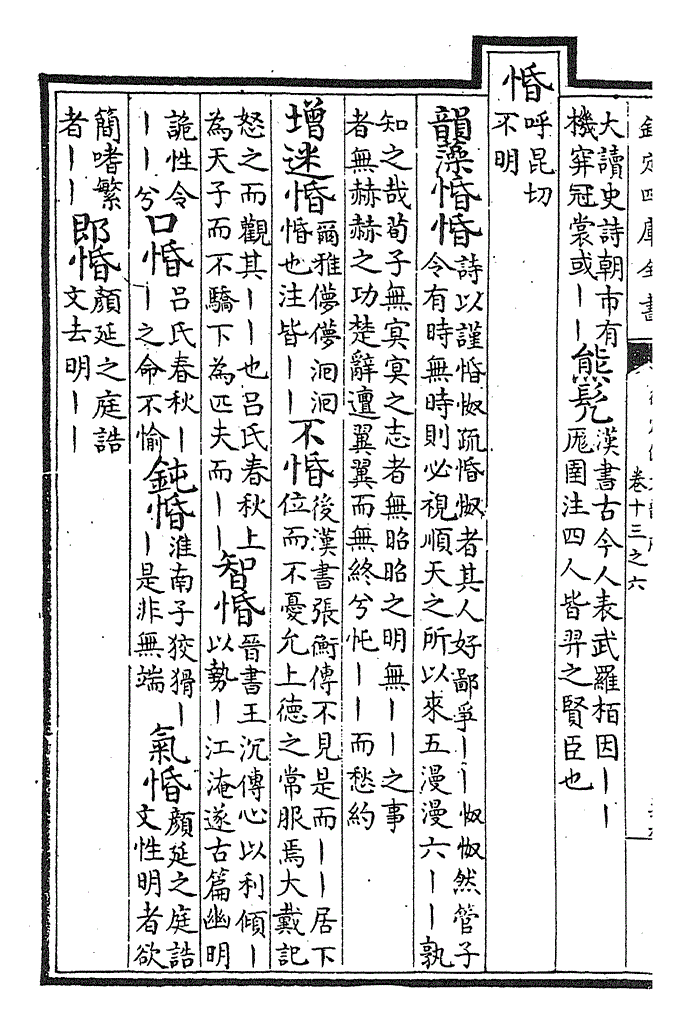 大讀史詩朝市有
機穽冠裳或丨丨
熊髠
漢書古今人表武羅栢因丨丨
厖圉注四人皆羿之賢臣也
惛
呼昆切
不明
韻藻
惛惛
詩以謹惛怓疏惛怓者其人好鄙爭丨丨怓怓然管子
令有時無時則必視順天之所以來五漫漫六丨丨孰
知之哉荀子無㝠㝠之志者無昭昭之明無丨丨之事
者無赫赫之功楚辭邅翼翼而無終兮忳丨丨而愁約
增
迷惛
爾雅儚儚洄洄
惛也注皆丨丨
不惛
後漢書張衡傳不見是而丨丨居下
位而不憂允上德之常服焉大戴記
怒之而觀其丨丨也呂氏春秋上
為天子而不驕下為匹夫而丨丨
智惛
晉書王沉傳心以利傾丨
以勢丨江淹遂古篇幽明
詭性令
丨丨兮
口惛
呂氏春秋丨
丨之命不愉
鈍惛
淮南子狡猾丨
丨是非無端
氣惛
顏延之庭誥
文性明者欲
簡嗜繁
者丨丨
即惛
顏延之庭誥
文去明丨丨
欽定四庫全書
卷十三之六